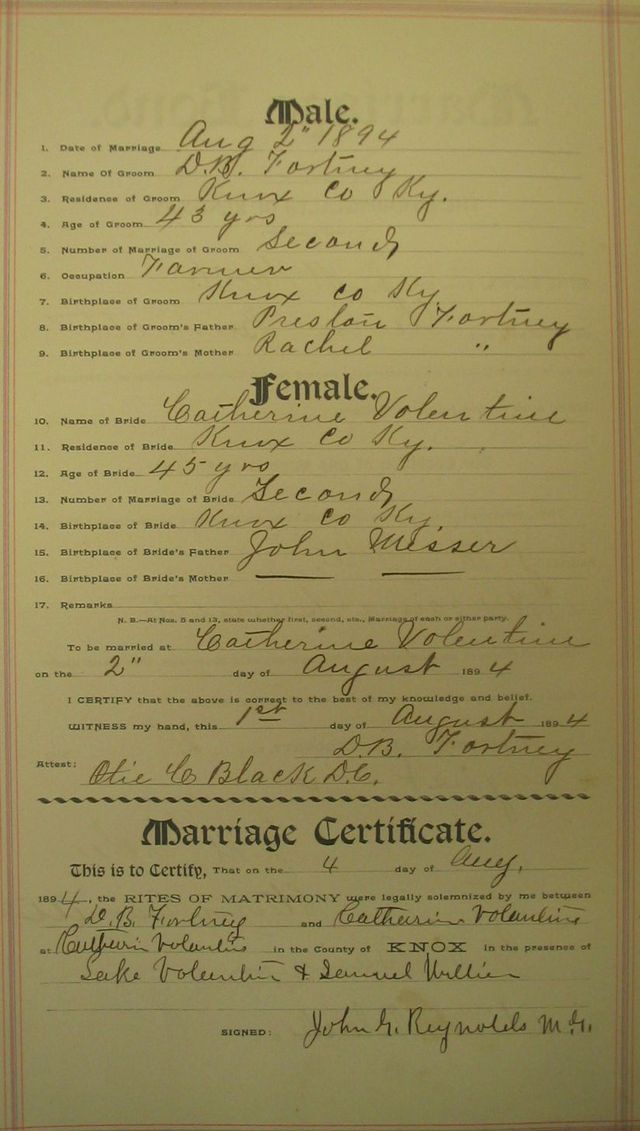 Male.
1. Date of Marriage Aug 2" 1894
2. Name Of Groom D.B. Fortney
3. Residence of Groom Knox Co Ky.
4. Age of Groom 43 yrs
5. Number of Marriage of Groom Second
6. Occupation Farmer
7. Birthplace of Groom Knox Co Ky
8. Birthplace of Groom's Father Preston Fortney
9. Birthplace of Groom's Mother Rachel "
Female.
10. Name of Bride Catherine Volentine
11. Residence of Bride Knox Co Ky.
12. Age of Bride 45 yrs
13. Number of Marriage of Bride Second
14. Birthplace of Bride Knox Co Ky.
15. Birthplace of Bride's Father John Messer
16. Birthplace of Bride's Mother
17. Remarks
N. B.—At Nos. 5 and 13, state whether first, second, etc., Marriage of each or either party.
To be married at Catherine Volentine
on the 2" day of August 1894
I CERTIFY that the above is correct to the best of my knowledge and belief.
WITNESS my hand, this 1st day of August 1894
D.B. Fortney
Attest: Otie C Black D.C.
Marriage Certificate.
This is to Certify, That on the 4 day of Aug.
1894, the RITES OF MATRIMONY were legally solemnized by me between
D. B. Fortney and Catharin Volantine
at Catharin Volantin in the County of KNOX in the presence of
Volantin & Samuel
SIGNED: John G. Reynolds M.G.